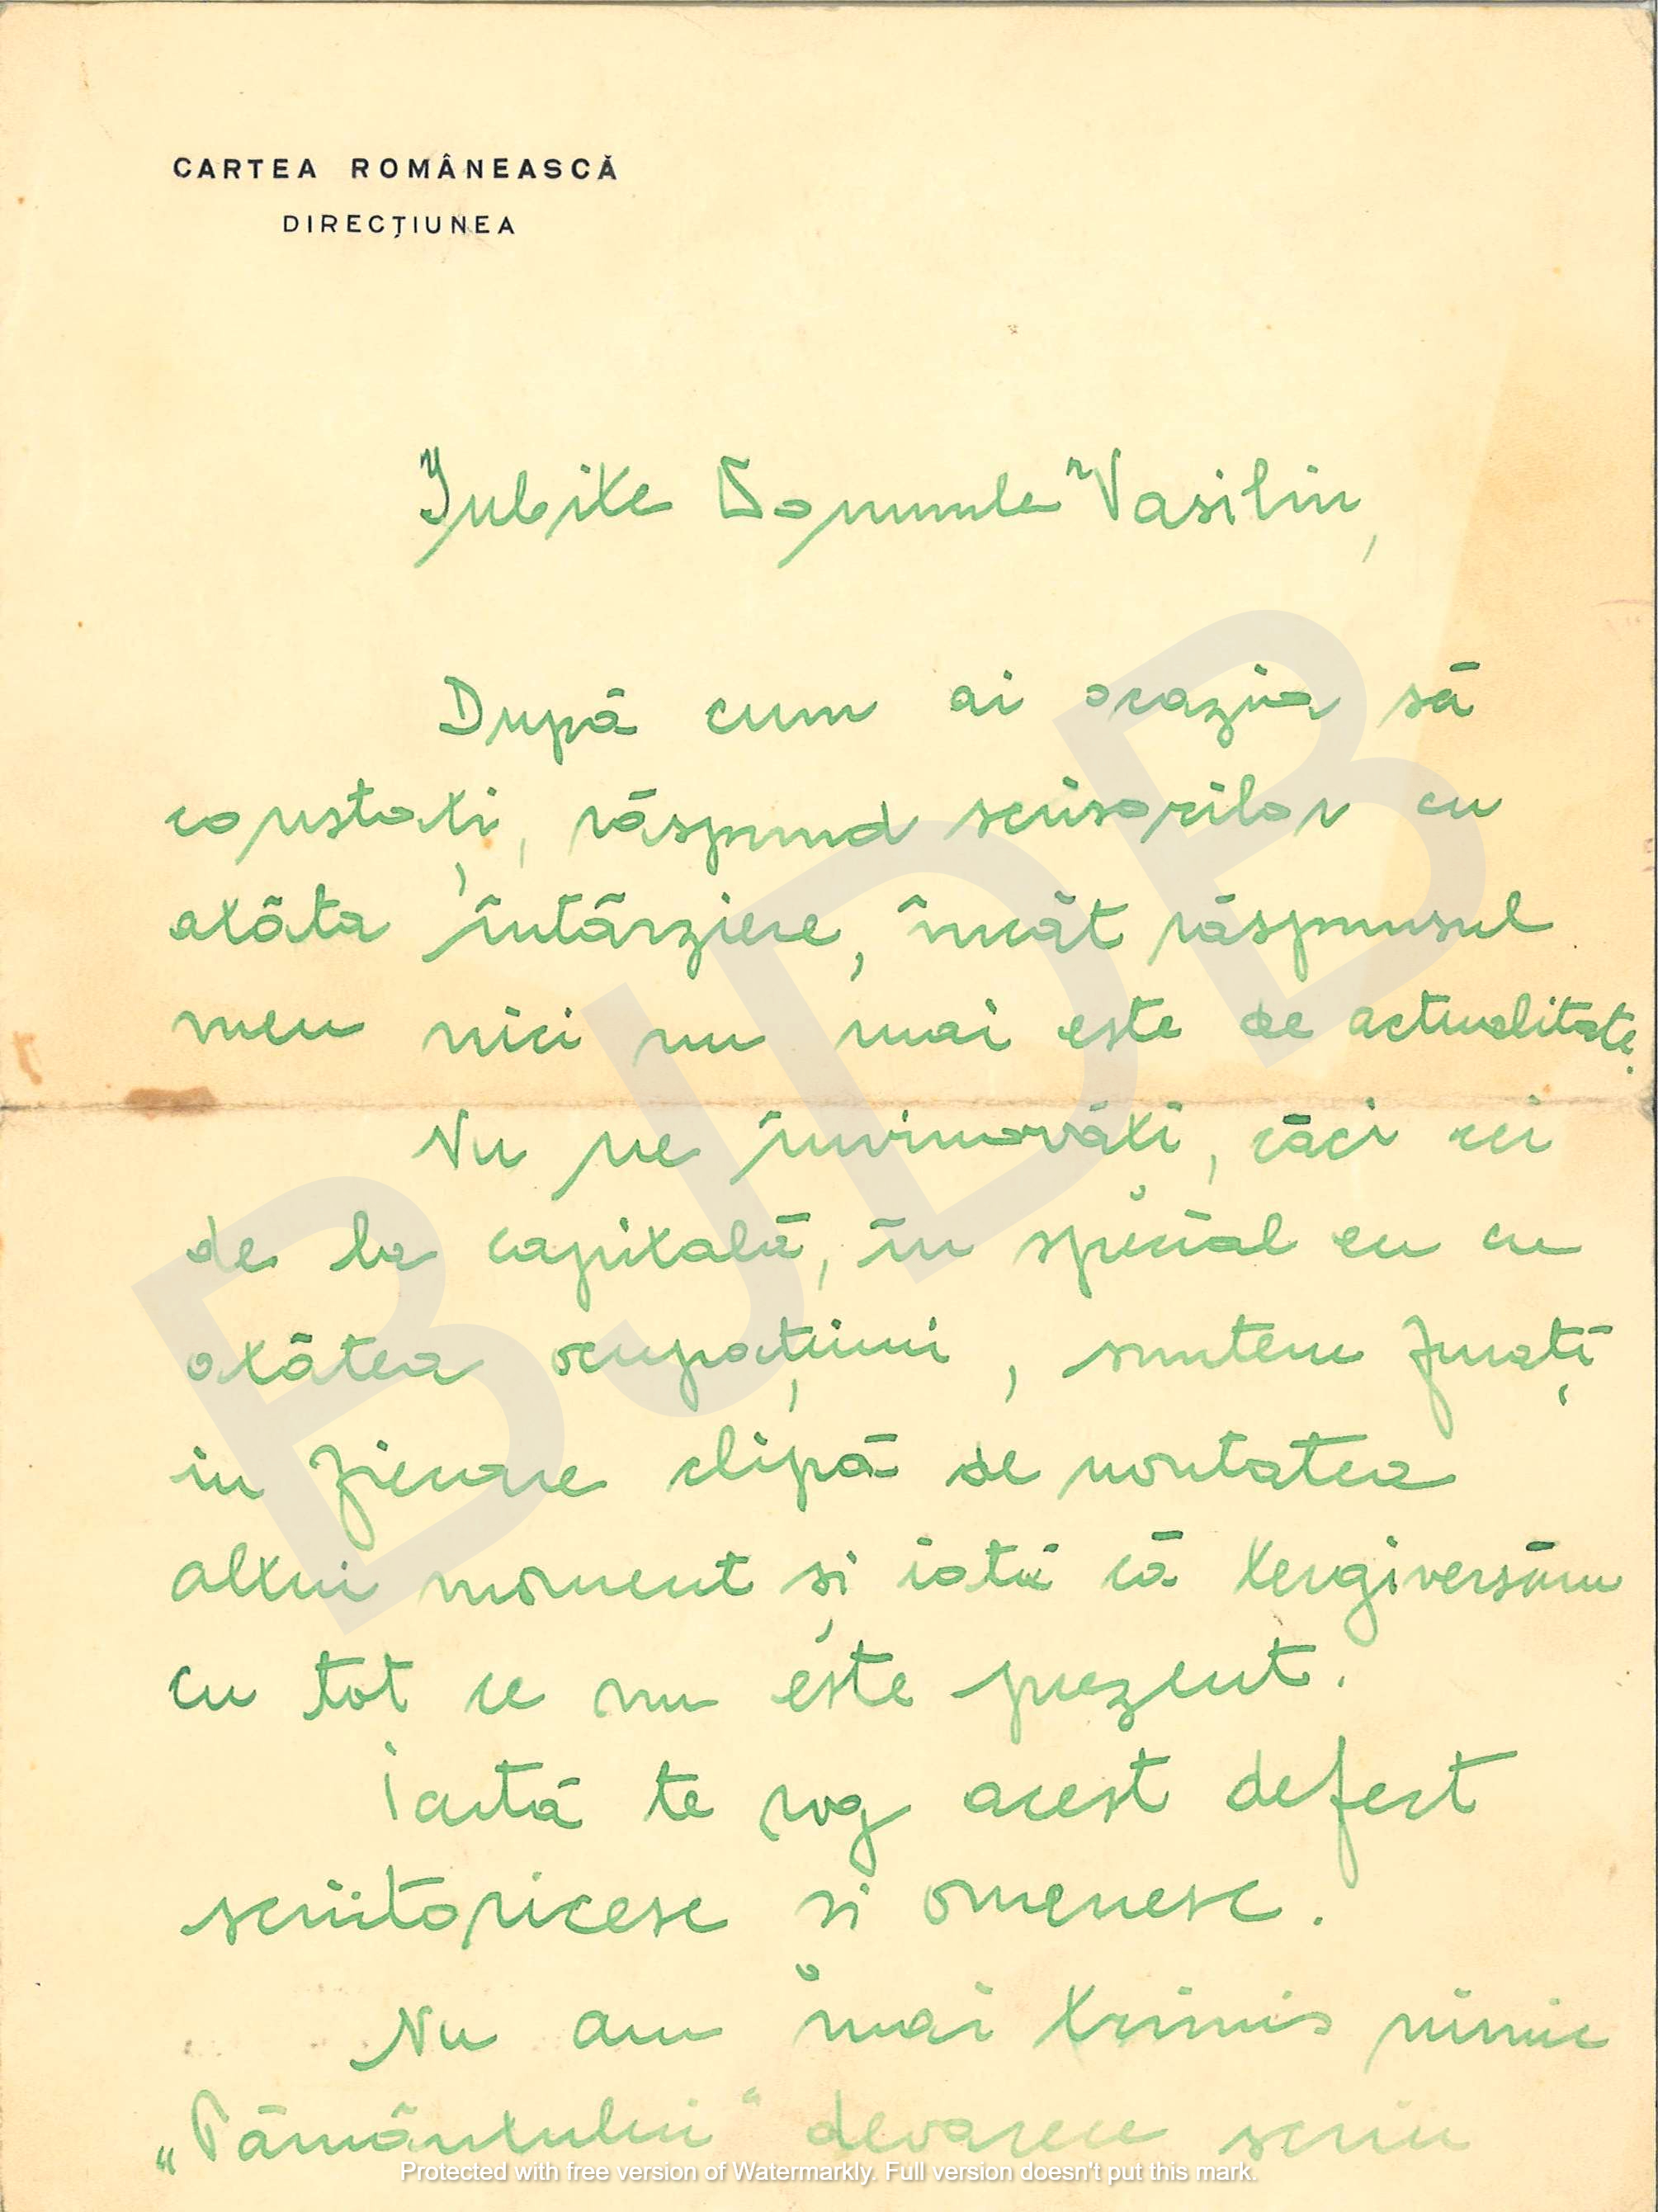 CARTEA ROMÂNEASCĂ
DIRECȚIUNEA
Iubite Domnule Vasiliu,
După cum ai ocazia să
constați, răspund scrisorilor cu
atâta întârziere, încât răspunsul
meu nici nu mai este de actualitate.
Nu ne învinovăți, căci cei
de la capitală, în special eu cu
atâtea ocupațiuni, suntem furați
in fiecare clipă de noutatea
altui moment și iată că tergiversăm
cu tot ce nu este prezent.
Iartă te rog acest defect
scriitoricesc și omenesc.
Nu am mai trimis nimic
„Pământului" deoarece scriu
BJDB
Protected with free version of Watermarkly. Full version doesn't put this mark.